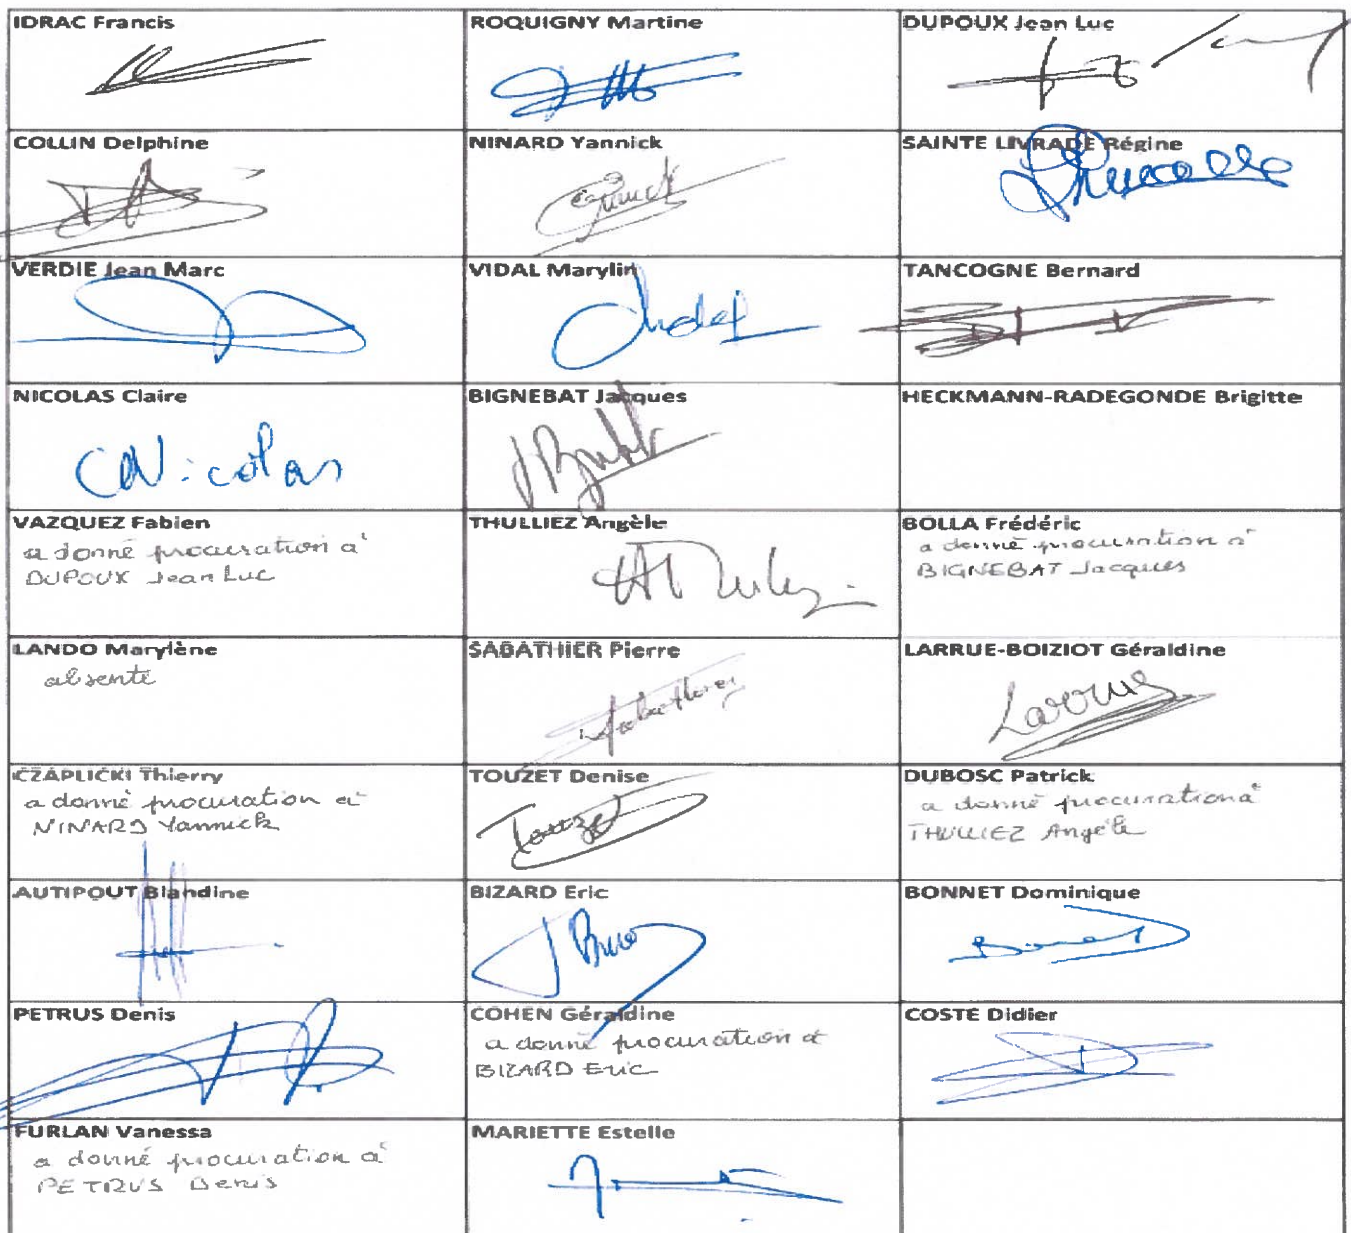 IDRAC Francis
ROQUIGNY Martine
DUPOUX Jean Luc
COLLIN Delphine
NINARD Yannick
SAINTE LIVRADE Régine
VERDIE Jean Marc
VIDAL Marylin
Vidal
TANCOGNE Bernard
NICOLAS Claire
Nicolas
BIGNEBAT Jacques
HECKMANN-RADEGONDE Brigitte
VAZQUEZ Fabien
a donné procuration à
DUPOUX Jean Luc
THULLIEZ Angèle
BOLLA Frédéric
a donné procuration à
BIGNEBAT Jacques
LANDO Marylène
absente
SABATHIER Pierre
Sabathier
LARRUE-BOIZIOT Géraldine
Larrue
CZAPLICKI Thierry
a donné procuration à
NINARD Yannick
TOUZET Denise
Touzet
DUBOSC Patrick
a donné procuration à
THULLIEZ Angèle
AUTIPOUT Blandine
BIZARD Eric
BONNET Dominique
PETRUS Denis
COHEN Géraldine
a donné procuration à
BIZARD Eric
COSTE Didier
FURLAN Vanessa
a donné procuration à
PETRUS Denis
MARIETTE Estelle